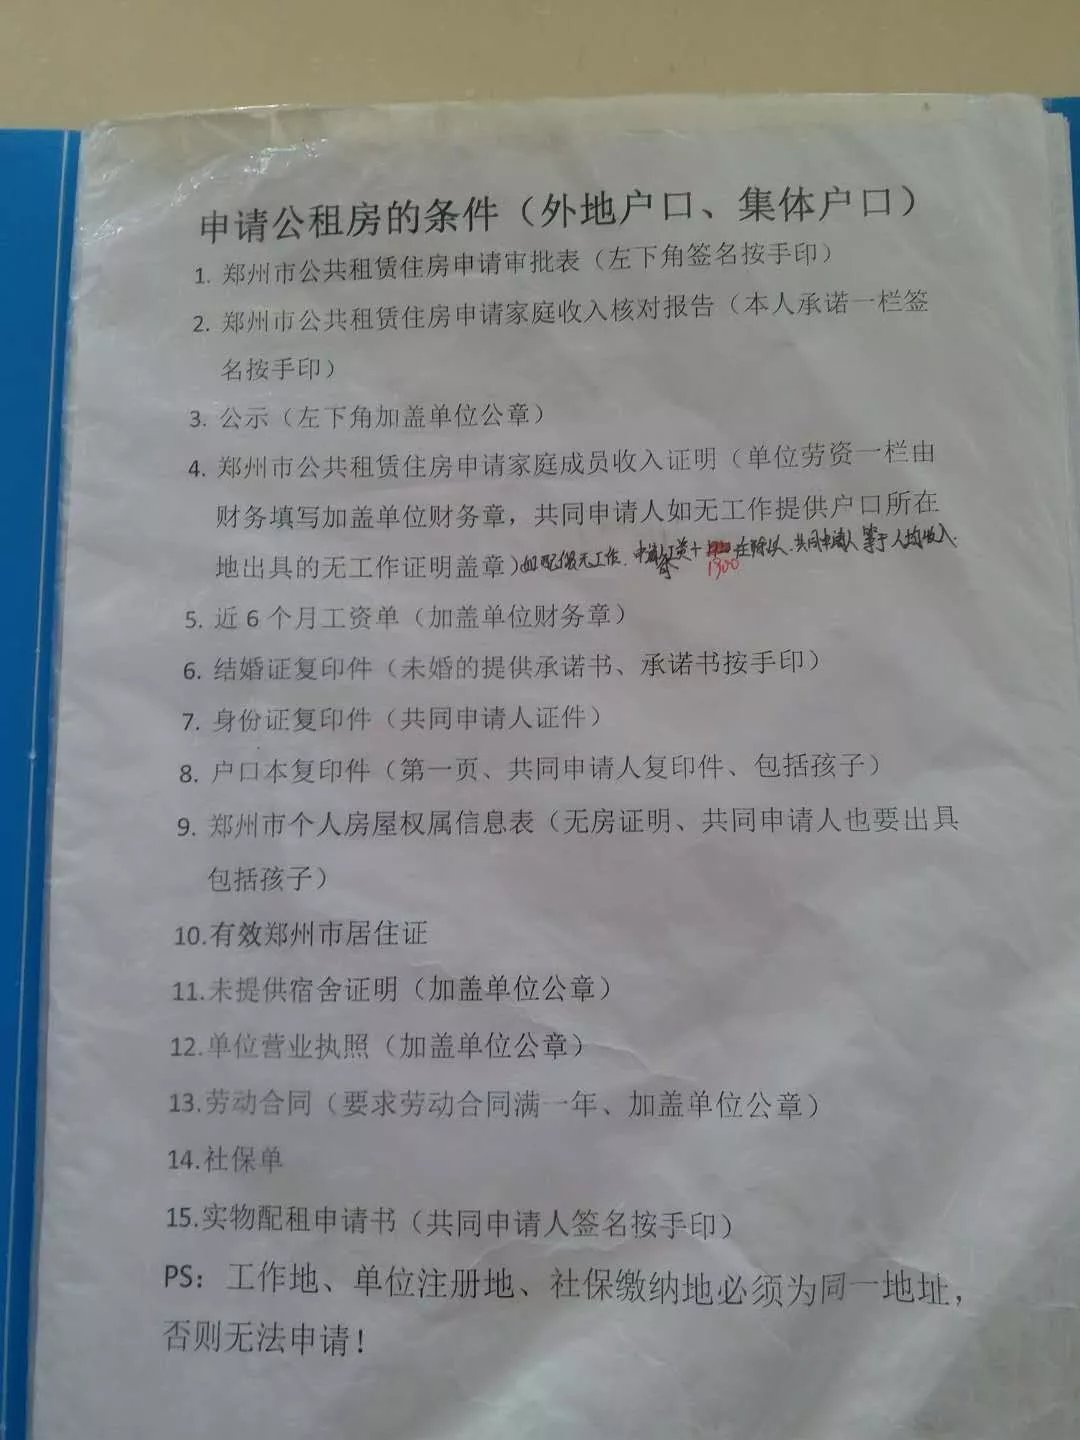 申请公租房的条件（外地户口、集体户口）
1. 郑州市公共租赁住房申请审批表（左下角签名按手印）
2. 郑州市公共租赁住房申请家庭收入核对报告（本人承诺一栏签
名按手印）
3. 公示（左下角加盖单位公章）
4. 郑州市公共租赁住房申请家庭成员收入证明（单位劳资一栏由
财务填写加盖单位财务章，共同申请人如无工作提供户口所在
地出具的无工作证明盖章）如配偶无工作. 申请人 + 1900 在除以.共同申请人 等于人均收入.
5. 近 6 个月工资单（加盖单位财务章）
6. 结婚证复印件（未婚的提供承诺书、承诺书按手印）
7. 身份证复印件（共同申请人证件）
8. 户口本复印件（第一页、共同申请人复印件、包括孩子）
9. 郑州市个人房屋权属信息表（无房证明、共同申请人也要出具
包括孩子）
10.有效郑州市居住证
11.未提供宿舍证明（加盖单位公章）
12.单位营业执照（加盖单位公章）
13.劳动合同（要求劳动合同满一年、加盖单位公章）
14.社保单
15.实物配租申请书（共同申请人签名按手印）
PS：工作地、单位注册地、社保缴纳地必须为同一地址，
否则无法申请！